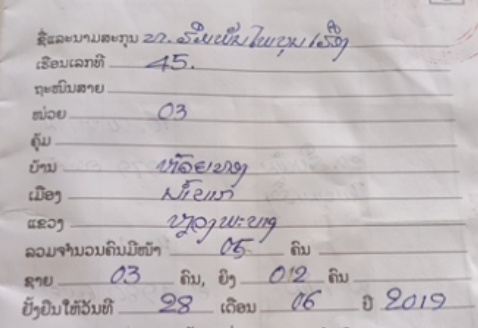 ຊື່ແລະນາມສະກຸນ ທ.
ເຮືອນເລກທີ 45.
ຖະໜົນສາຍ
ໜ່ວຍ 03
ຄຸ້ມ
ບ້ານ
ເມືອງ
ແຂວງ ຫຼວງພະບາງ
ລວມຈຳນວນຄົນມີໜ້າ 05 ຄົນ
ຊາຍ 03 ຄົນ, ຍິງ 012 ຄົນ
ຢັ້ງຢືນໃຫ້ວັນທີ 28 ເດືອນ 06 ປີ 2019